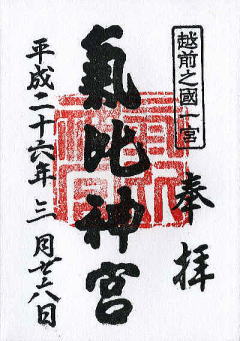 越前之國一宮
奉拝
氣比神宮
平成二十六年三月廿八日